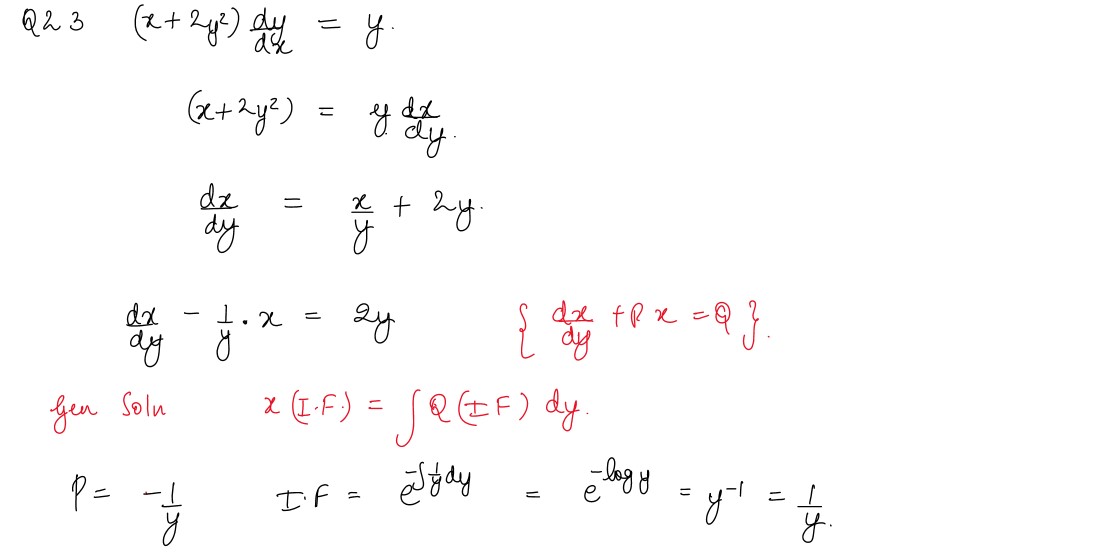 Q23 (x + 2y²) dy/dx = y.
(x + 2y²) = y dx/dy.
dx/dy = x/y + 2y.
dx/dy - 1/y . x = 2y { dx/dy + P x = Q }.
Gen Soln x (I.F.) = ∫ Q (I F) dy.
P = -1/y I.F = e^(-∫ 1/y dy) = e^(-log y) = y⁻¹ = 1/y.